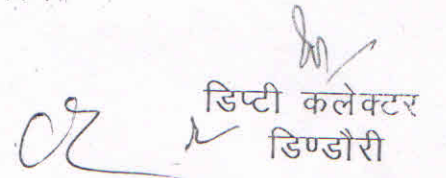 डिप्टी कलेक्टर
डिण्डौरी